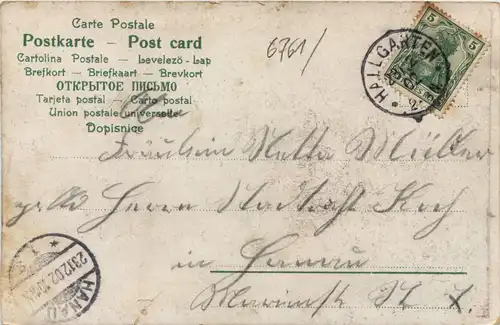 Carte Postale
Postkarte – Post card
Cartolina Postale – Levelező-Lap
Brefkort – Briefkaart – Brevkort
ОТКРЫТОЕ ПИСЬМО
Tarjeta postal – Carto postal
Union postale universelle
Dopisnice
6761/
5 5
HALLGARTEN
Fräulein Netta Müller
Herrn Koch
in Hanau
HANAU
23.12.02